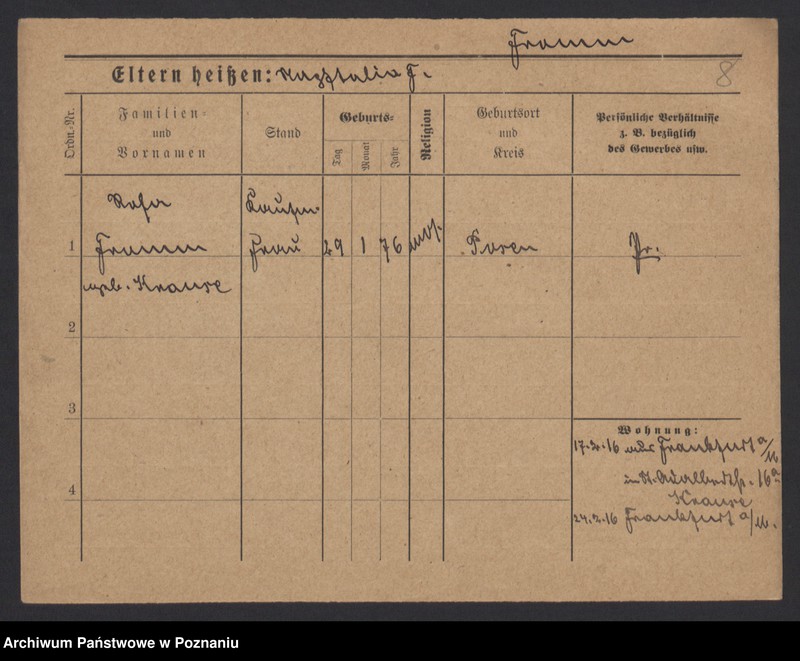 Fromm
8
Eltern heißen: Naphtalie F.
Ordn.-Nr.
Familien- und Vornamen
Stand
Geburts-
Tag
Monat
Jahr
Religion
Geburtsort und Kreis
Persönliche Verhältnisse z. B. bezüglich des Gewerbes usw.
Rosa
Kaufm.
1
Fromm
Frau
29
1
76
mos.
Posen
Pr.
geb. Krause
2
3
Wohnung:
17.2.16 aus Frankfurt a/M.
in St. Adalbertstr. 16a
Krause
4
24.2.16 Frankfurt a/M.
Archiwum Państwowe w Poznaniu